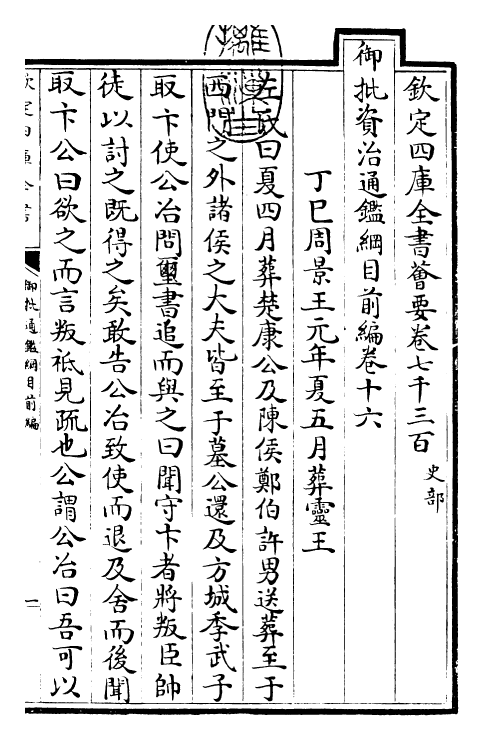 欽定四庫全書薈要卷七千三百
史部
御批資治通鑑綱目前編卷十六
丁巳周景王元年夏五月葬靈王
左氏曰夏四月葬楚康公及陳侯鄭伯許男送葬至于
西門之外諸侯之大夫皆至于墓公還及方城季武子
取卞使公冶問璽書追而與之曰聞守卞者將叛臣帥
徒以討之既得之矣敢告公冶致使而退及舍而後聞
取卞公曰欲之而言叛祗見疏也公謂公冶曰吾可以
御批通鑑綱目前編
一